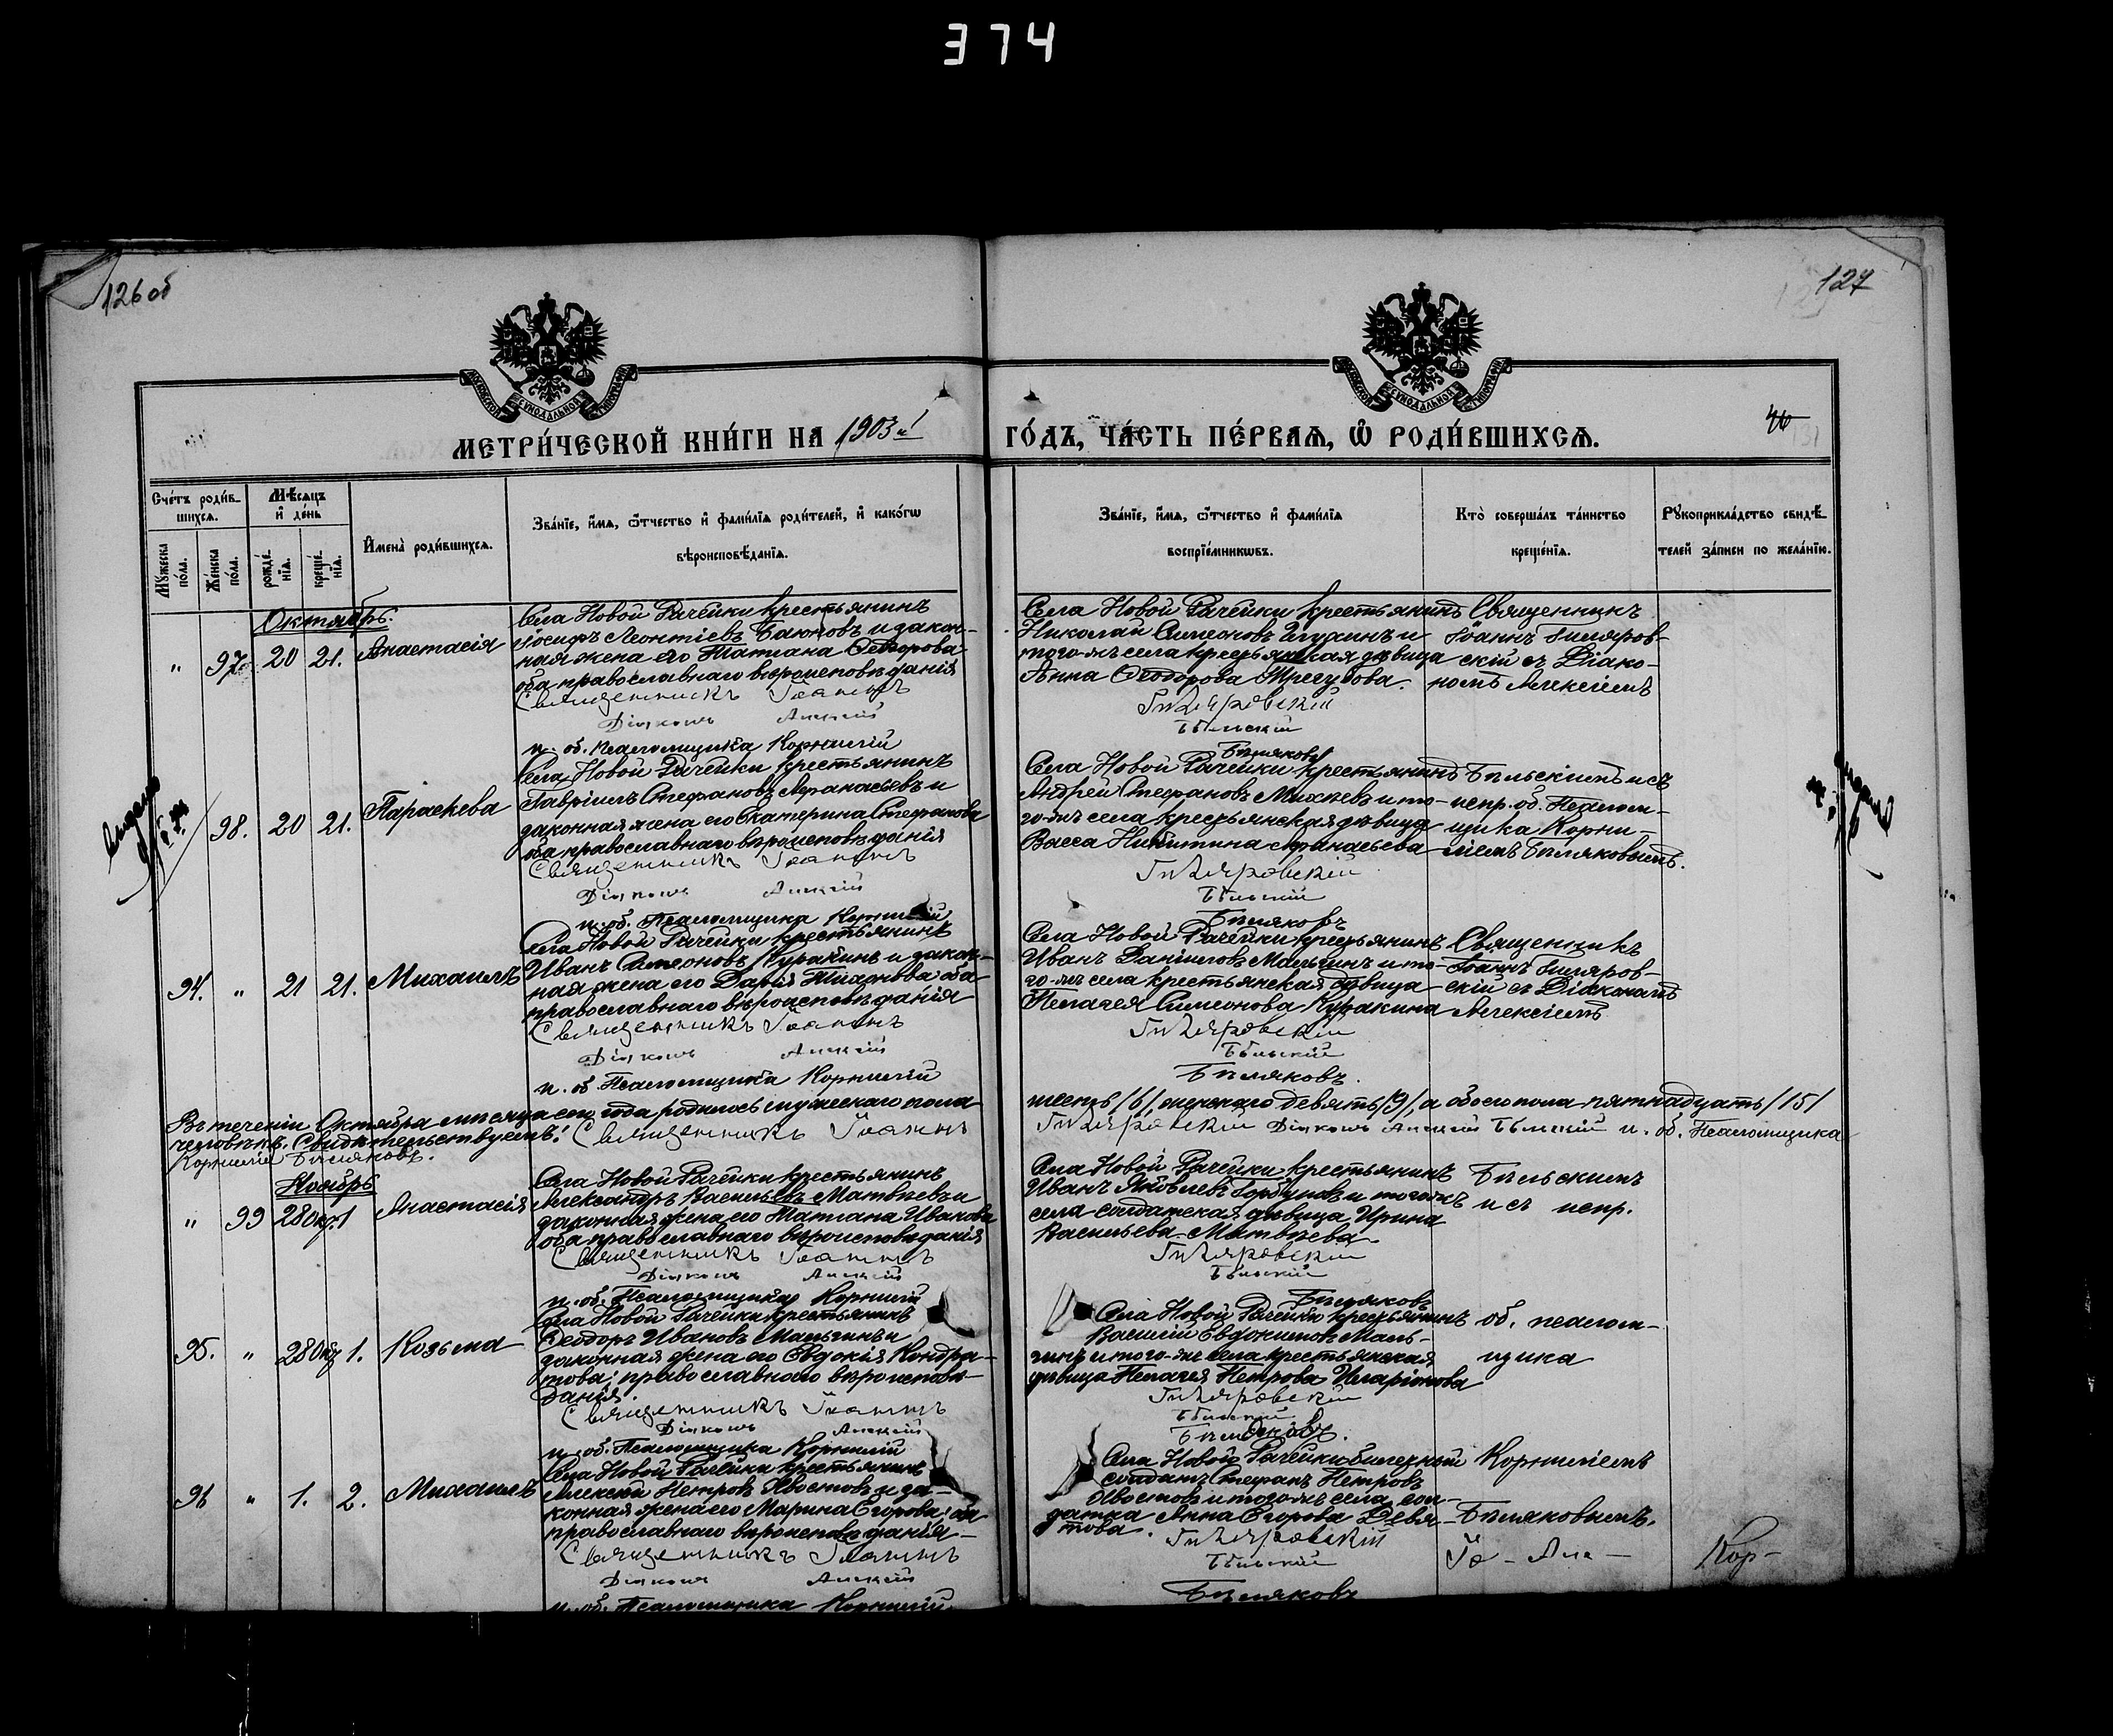 374
126 об
127
МОСКОВСКОЙ СѴНОДАЛЬНОЙ ТИПОГРАФІИ
МОСКОВСКОЙ СѴНОДАЛЬНОЙ ТИПОГРАФІИ
МЕТРИ́ЧЕСКОЙ КНИ́ГИ НА 1903й
ГО́ДЪ, ЧА́СТЬ ПЕ́РВАѦ, Ѽ РОДИ́ВШИХСѦ.
Сче́тъ роди́в-
шихсѧ.
Мѣ́сѧцъ
и҆ де́нь
Мꙋ́жеска
по́ла.
Же́нска
по́ла.
рожде́-
нїѧ.
креще́-
нїѧ.
И҆мена̀ роди́вшихсѧ.
Зва́нїе, и҆́мѧ, ѻ҆́тчество и҆ фами́лїѧ роди́телей, и҆ како́гѡ
вѣроисповѣ́данїѧ.
Зва́нїе, и҆́мѧ, ѻ҆́тчество и҆ фами́лїѧ
воспрїе́мникѡвъ.
Кто̀ соверша́лъ та́инство
креще́нїѧ.
Рꙋкоприкла́дство свидѣ́-
телей за́писи по жела́нїю.
Октябрь.
„ 97. 20 21. Анастасія
Села Новой Рачейки крестьянинъ
Іосифъ Леонтіевъ Баюновъ и закон-
ная жена его Татіана Ѳеодорова
оба православнаго вѣроисповѣданія
Священникъ Іоаннъ
Діаконъ Алексій
и. об. псаломщика Корнилій
Села Новой Рачейки крестьянинъ
Николай Симеоновъ Глухинъ и
того-жъ села крестьянская дѣвица
Анна Ѳеодорова Трегубова.
Гиляровскій
Бѣльскій
Бѣляковъ
Священникъ
Іоаннъ Гиляров-
скій съ Діако-
номъ Алексіемъ
„ 98. 20 21. Параскева
Села Новой Рачейки крестьянинъ
Гавріилъ Стефановъ Аѳанасьевъ и
законная жена его Екатерина Стефанова
оба православнаго вѣроисповѣданія
Священникъ Іоаннъ
Діаконъ Алексій
и. об. Псаломщика Корнилій
Села Новой Рачейки крестьянинъ
Андрей Стефановъ Михѣевъ и то-
го-жъ села крестьянская дѣвица
Васса Никитина Аѳанасьева
Гиляровскій
Бѣльскій
Бѣляковъ
Бѣльскимъ и съ
испр. об. Псалом-
щика Корни-
ліемъ Бѣляковымъ.
94. „ 21 21. Михаилъ
Села Новой Рачейки крестьянинъ
Иванъ Симеоновъ Куракинъ и закон-
ная жена его Дарія Тихонова оба
православнаго вѣроисповѣданія
Священникъ Іоаннъ
Діаконъ Алексій
и. об. Псаломщика Корнилій
Села Новой Рачейки крестьянинъ
Иванъ Даніиловъ Мальгинъ и то-
го-жъ села крестьянская дѣвица
Пелагея Симеонова Куракина
Гиляровскій
Бѣльскій
Бѣляковъ.
Священникъ
Іоаннъ Гиляров-
скій съ Діакономъ
Алексіемъ
Въ теченіи Октября мѣсяца сего года родилось мужескаго пола шесть /6/, женскаго девять /9/, а обоего пола пятнадцать /15/
человѣкъ. Свидѣтельствуемъ: Священникъ Іоаннъ Гиляровскій Діаконъ Алексій Бѣльскій и. об. Псаломщика
Корнилій Бѣляковъ.
Ноябрь
„ 99 28 Окт. 1 Анастасія
Села Новой Рачейки крестьянинъ
Александръ Васильевъ Матвѣевъ и
законная жена его Татіана Иванова
оба православнаго вѣроисповѣданія
Священникъ Іоаннъ
Діаконъ Алексій
и. об. Псаломщика Корнилій
Села Новой Рачейки крестьянинъ
Иванъ Яковлевъ Горбуновъ и того-жъ
села солдатская дѣвица Ирина
Васильева Матвѣева
Гиляровскій
Бѣльскій
Бѣляковъ
Бѣльскимъ
и съ испр.
95. „ 28 Окт 1. Козьма
Села Новой Рачейки крестьянинъ
Ѳеодоръ Ивановъ Мальгинъ и
законная жена его Евдокія Кондра-
това; православнаго вѣроисповѣ-
данія.
Священникъ Іоаннъ
Діаконъ Алексій
и. об. Псаломщика Корнилій
Села Новой Рачейки крестьянинъ
Василій Евдокимовъ Маль-
гинъ и того-жъ села крестьянская
дѣвица Пелагея Петрова Иларіонова
Гиляровскій
Бѣльскій
Бѣляковъ.
об. псалом-
щика
96 „ 1. 2. Михаилъ
Села Новой Рачейки крестьянинъ
Алексій Петровъ Хвостовъ и за-
конная жена его Марина Егорова; оба
православнаго вѣроисповѣданія
Священникъ Іоаннъ
Діаконъ Алексій
и. об. Псаломщика Корнилій
Села Новой Рачейки билетный
солдатъ Стефанъ Петровъ
Хвостовъ и того-жъ села сол-
датка Анна Егорова Девя-
това.
Гиляровскій
Бѣльскій
Бѣляковъ
Корниліемъ
Бѣляковымъ.
Іо - Але -
Кор-